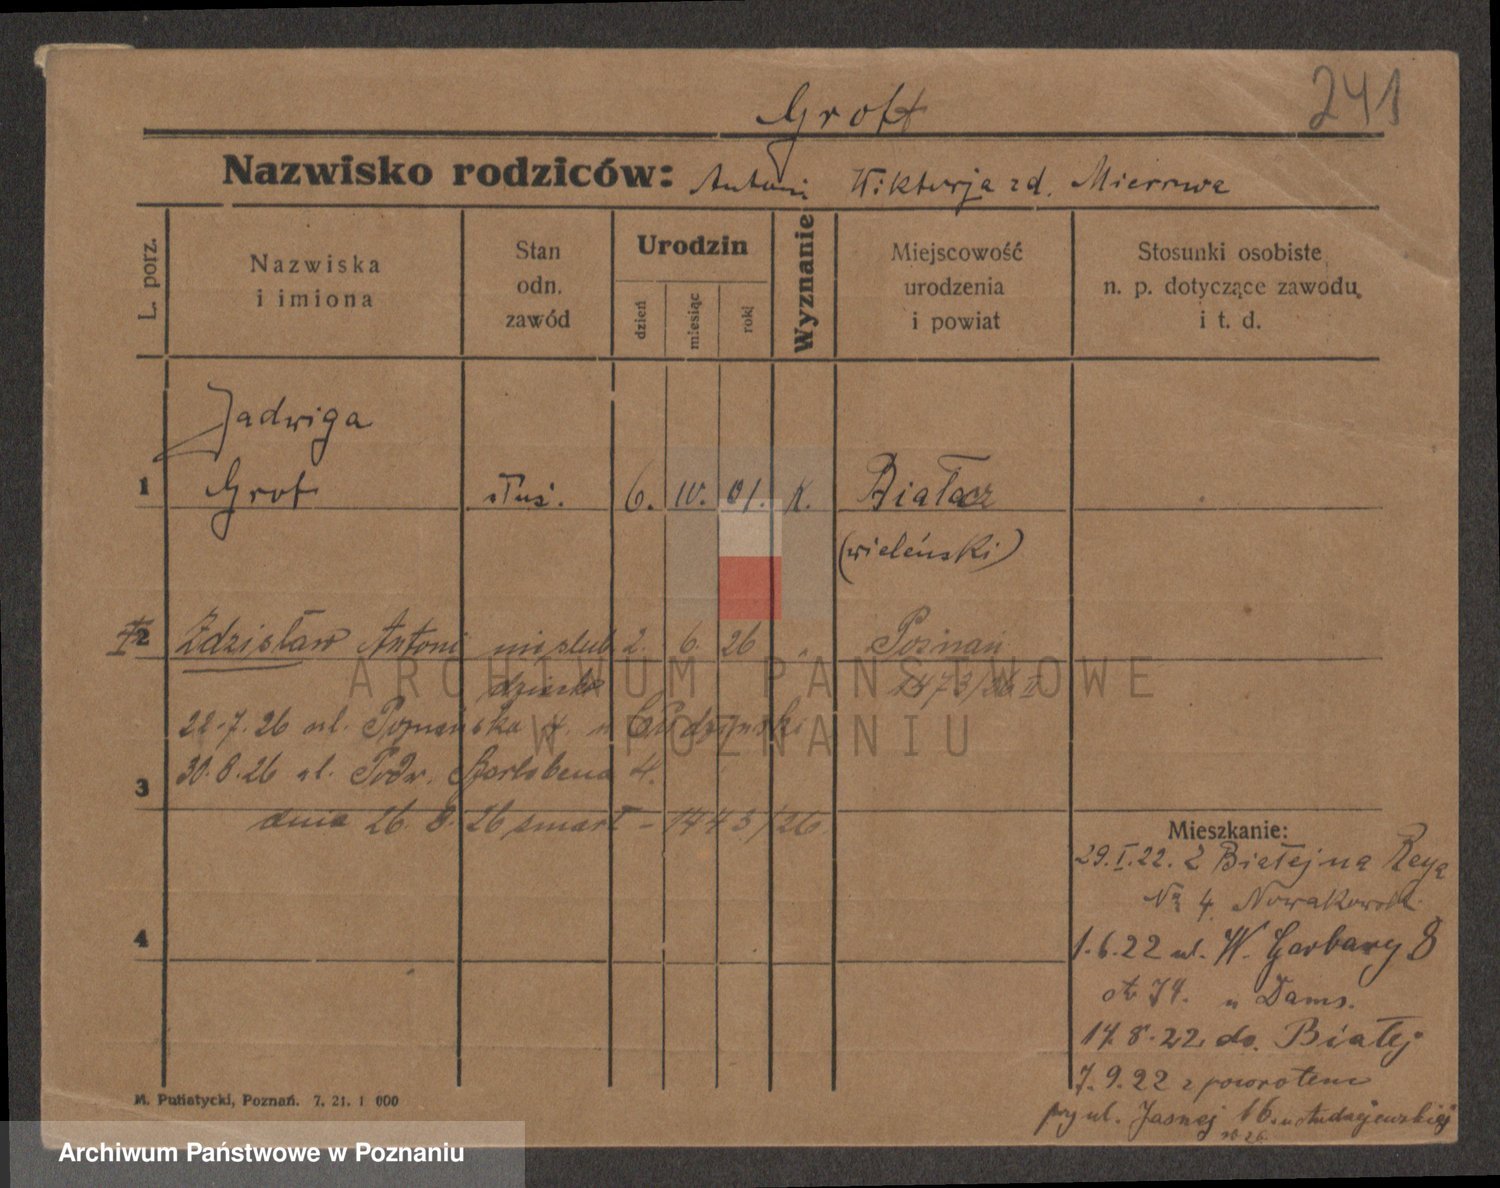 241
Groft
Nazwisko rodziców: Antoni Wiktorja zd. Mierrwa
L. porz.
Nazwiska i imiona
Stan odn. zawód
Urodzin
dzień
miesiąc
rok
Wyznanie
Miejscowość urodzenia i powiat
Stosunki osobiste n. p. dotyczące zawodu, i t. d.
Jadwiga
1 Grot służ. 6. IV. 01. K. Białacz
(wieleński)
2 Zdzisław Antoni nieślub. 2. 6. 26 " Poznań
dziecko 1473/26 II
22.7.26 ul. Poznańska 4. u
3 30.8.26 ul. Podw. 4.
dnia 26. 8. 26 smart - 1443/26
Mieszkanie:
29.I.22. z Białej na Reya
No 4. Nowakowsk.
1.6.22 ul. W. Garbary 8
74. u Dams.
4
17.8.22. do. Białej
7.9.22 z powrotem
przy ul. Jasnej 16.
M. Putiatycki, Poznań. 7. 21. 1 000
ARCHIWUM PAŃSTWOWE
W POZNANIU
Archiwum Państwowe w Poznaniu